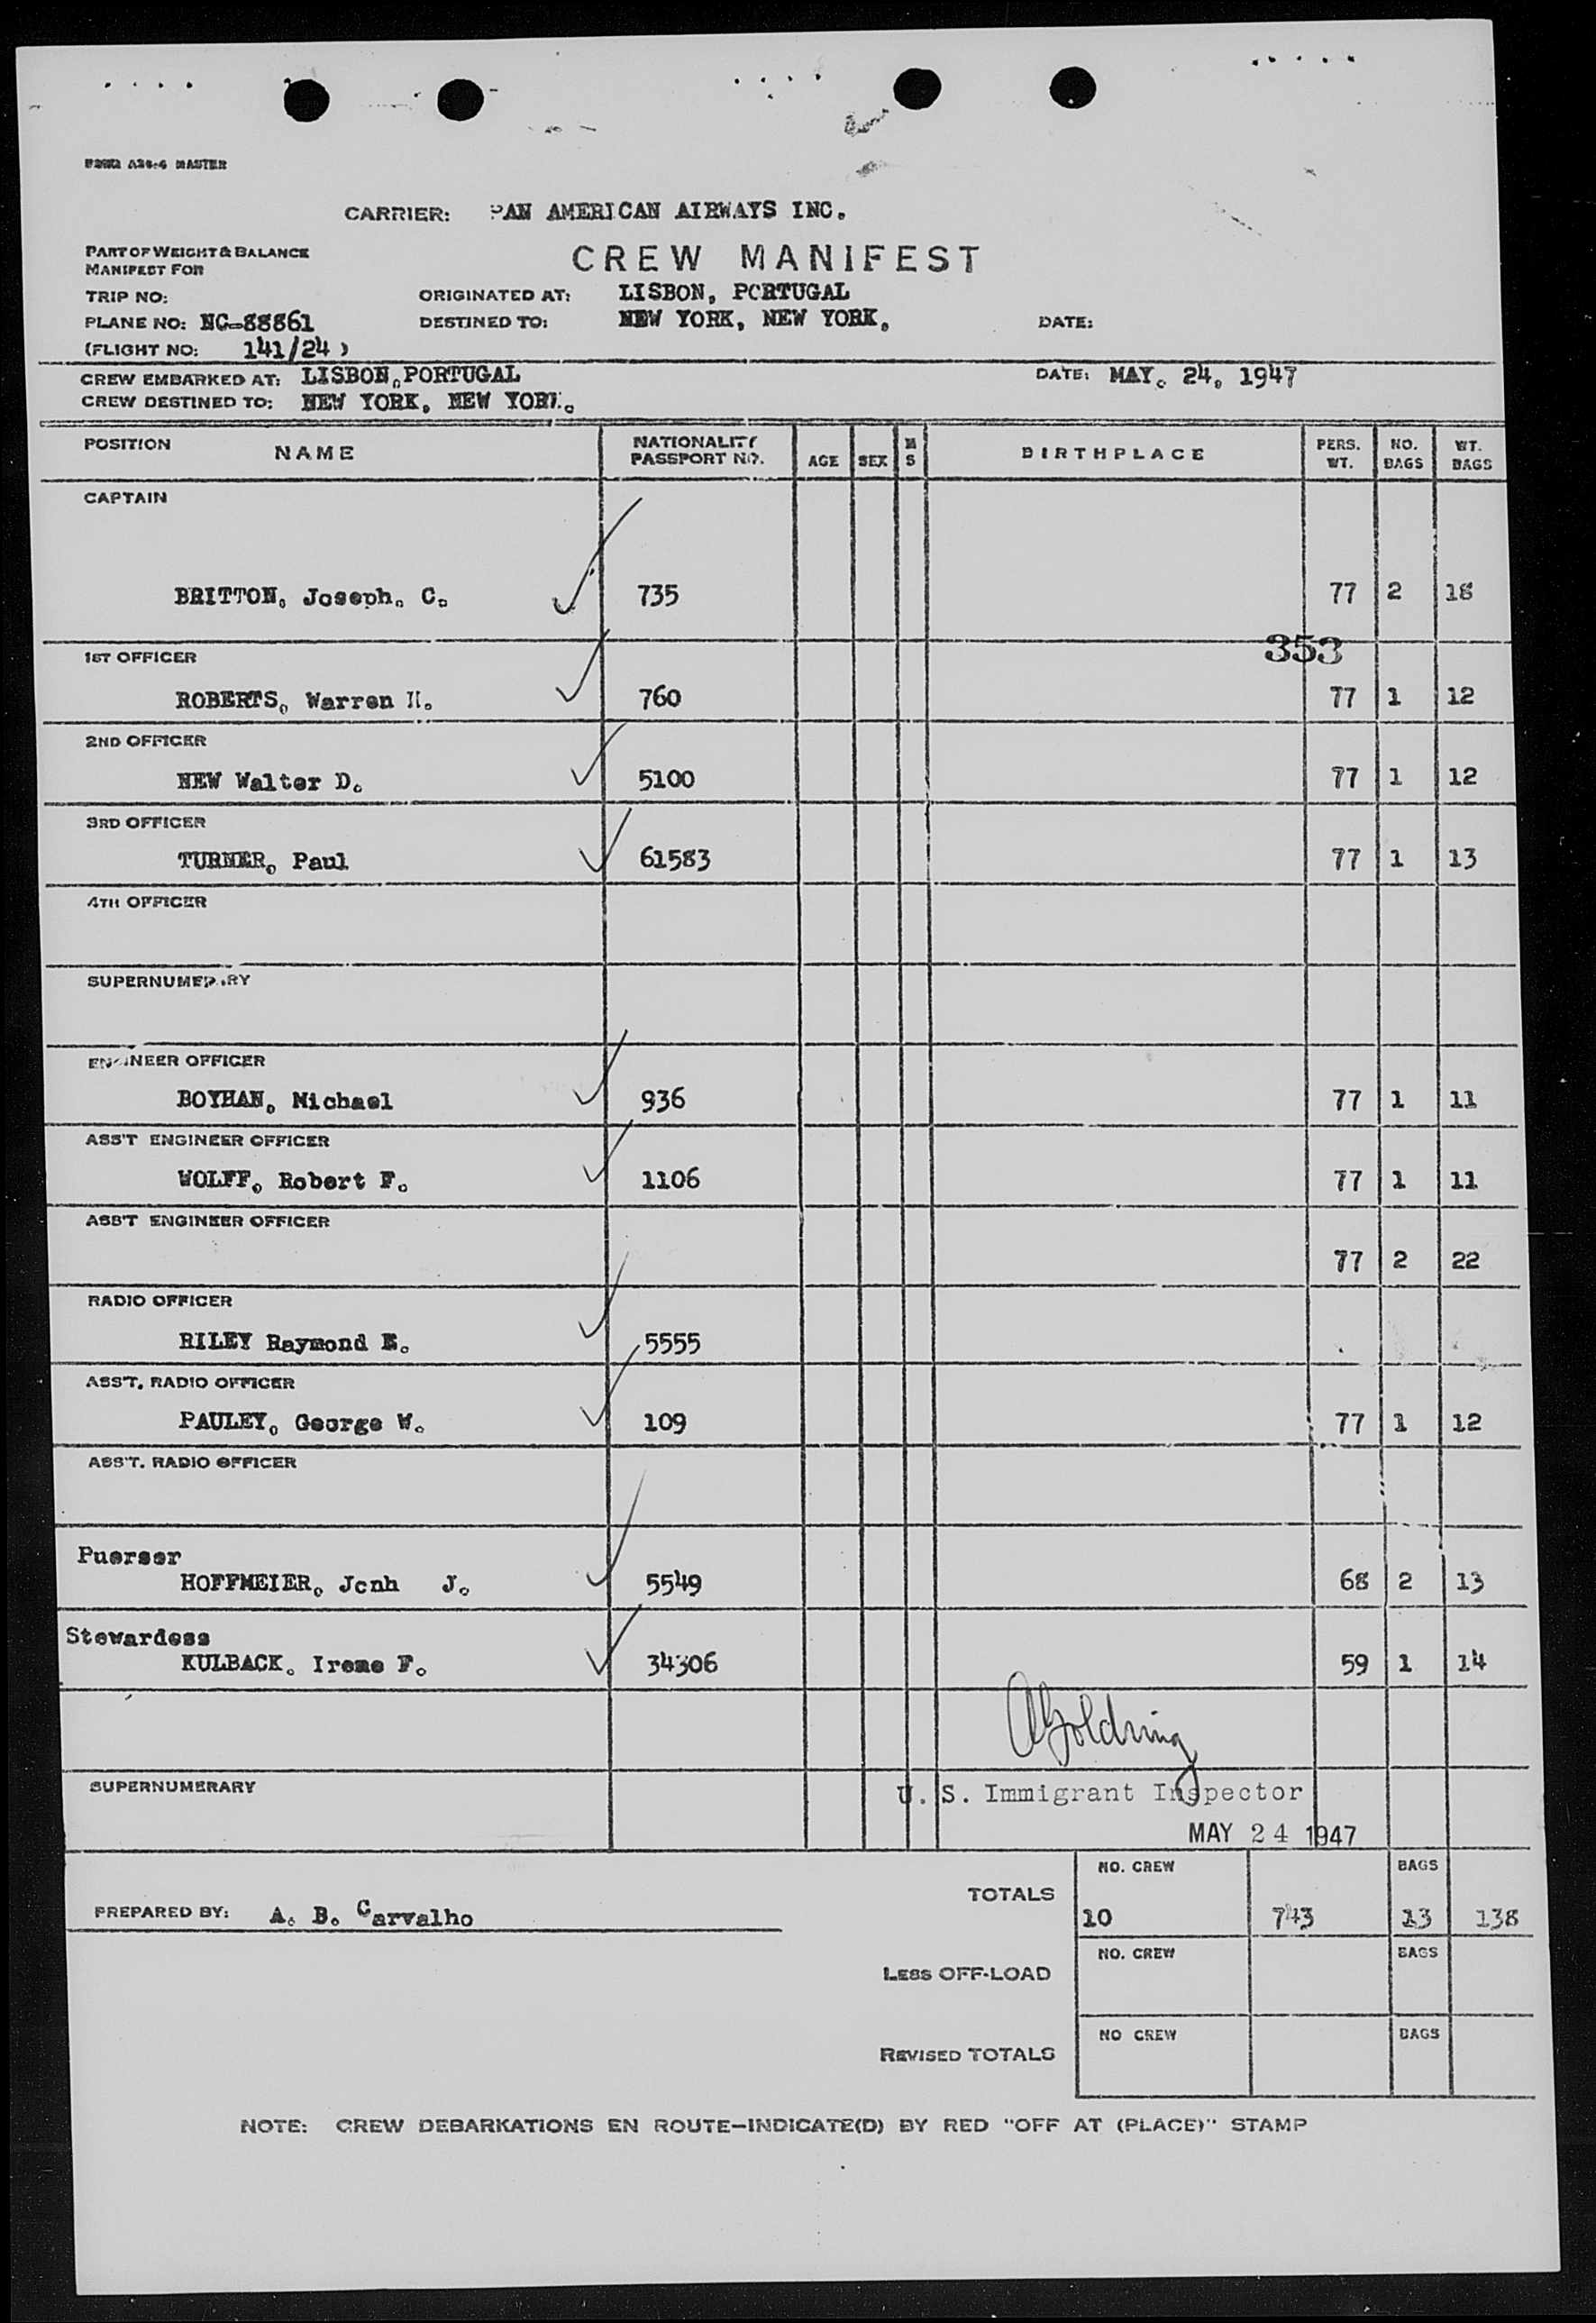 MASTER
CARRIER: PAN AMERICAN AIRWAYS INC.
PART OF WEIGHT & BALANCE
MANIFEST FOR
CREW MANIFEST
TRIP NO:
ORIGINATED AT: LISBON, PORTUGAL
PLANE NO: NC-88861
DESTINED TO: NEW YORK, NEW YORK,
DATE:
(FLIGHT NO: 141/24 )
CREW EMBARKED AT: LISBON,PORTUGAL
DATE: MAY. 24, 1947
CREW DESTINED TO: NEW YORK, NEW YORK.
POSITION NAME NATIONALITY PASSPORT NO. AGE SEX M S BIRTHPLACE PERS. WT. NO. BAGS WT. BAGS
CAPTAIN
BRITTON, Joseph, C. 735 77 2 18
353
1ST OFFICER
ROBERTS, Warren H. 760 77 1 12
2ND OFFICER
NEW Walter D. 5100 77 1 12
3RD OFFICER
TURNER, Paul 61583 77 1 13
4TH OFFICER
SUPERNUMERARY
ENGINEER OFFICER
BOYHAN, Michael 936 77 1 11
ASS'T ENGINEER OFFICER
WOLFF, Robert F. 1106 77 1 11
ASS'T ENGINEER OFFICER
77 2 22
RADIO OFFICER
RILEY Raymond E. 5555
ASS'T. RADIO OFFICER
PAULEY, George W. 109 77 1 12
ASS'T. RADIO OFFICER
Puerser
HOFFMEIER, Jonh J. 5549 68 2 13
Stewardess
KULBACK. Irene F. 34306 59 1 14
AGoldring
SUPERNUMERARY
U. S. Immigrant Inspector
MAY 24 1947
NO. CREW BAGS
TOTALS
PREPARED BY: A. B. Carvalho
10 743 13 138
NO. CREW BAGS
LESS OFF-LOAD
NO CREW BAGS
REVISED TOTALS
NOTE: CREW DEBARKATIONS EN ROUTE-INDICATE(D) BY RED "OFF AT (PLACE)" STAMP